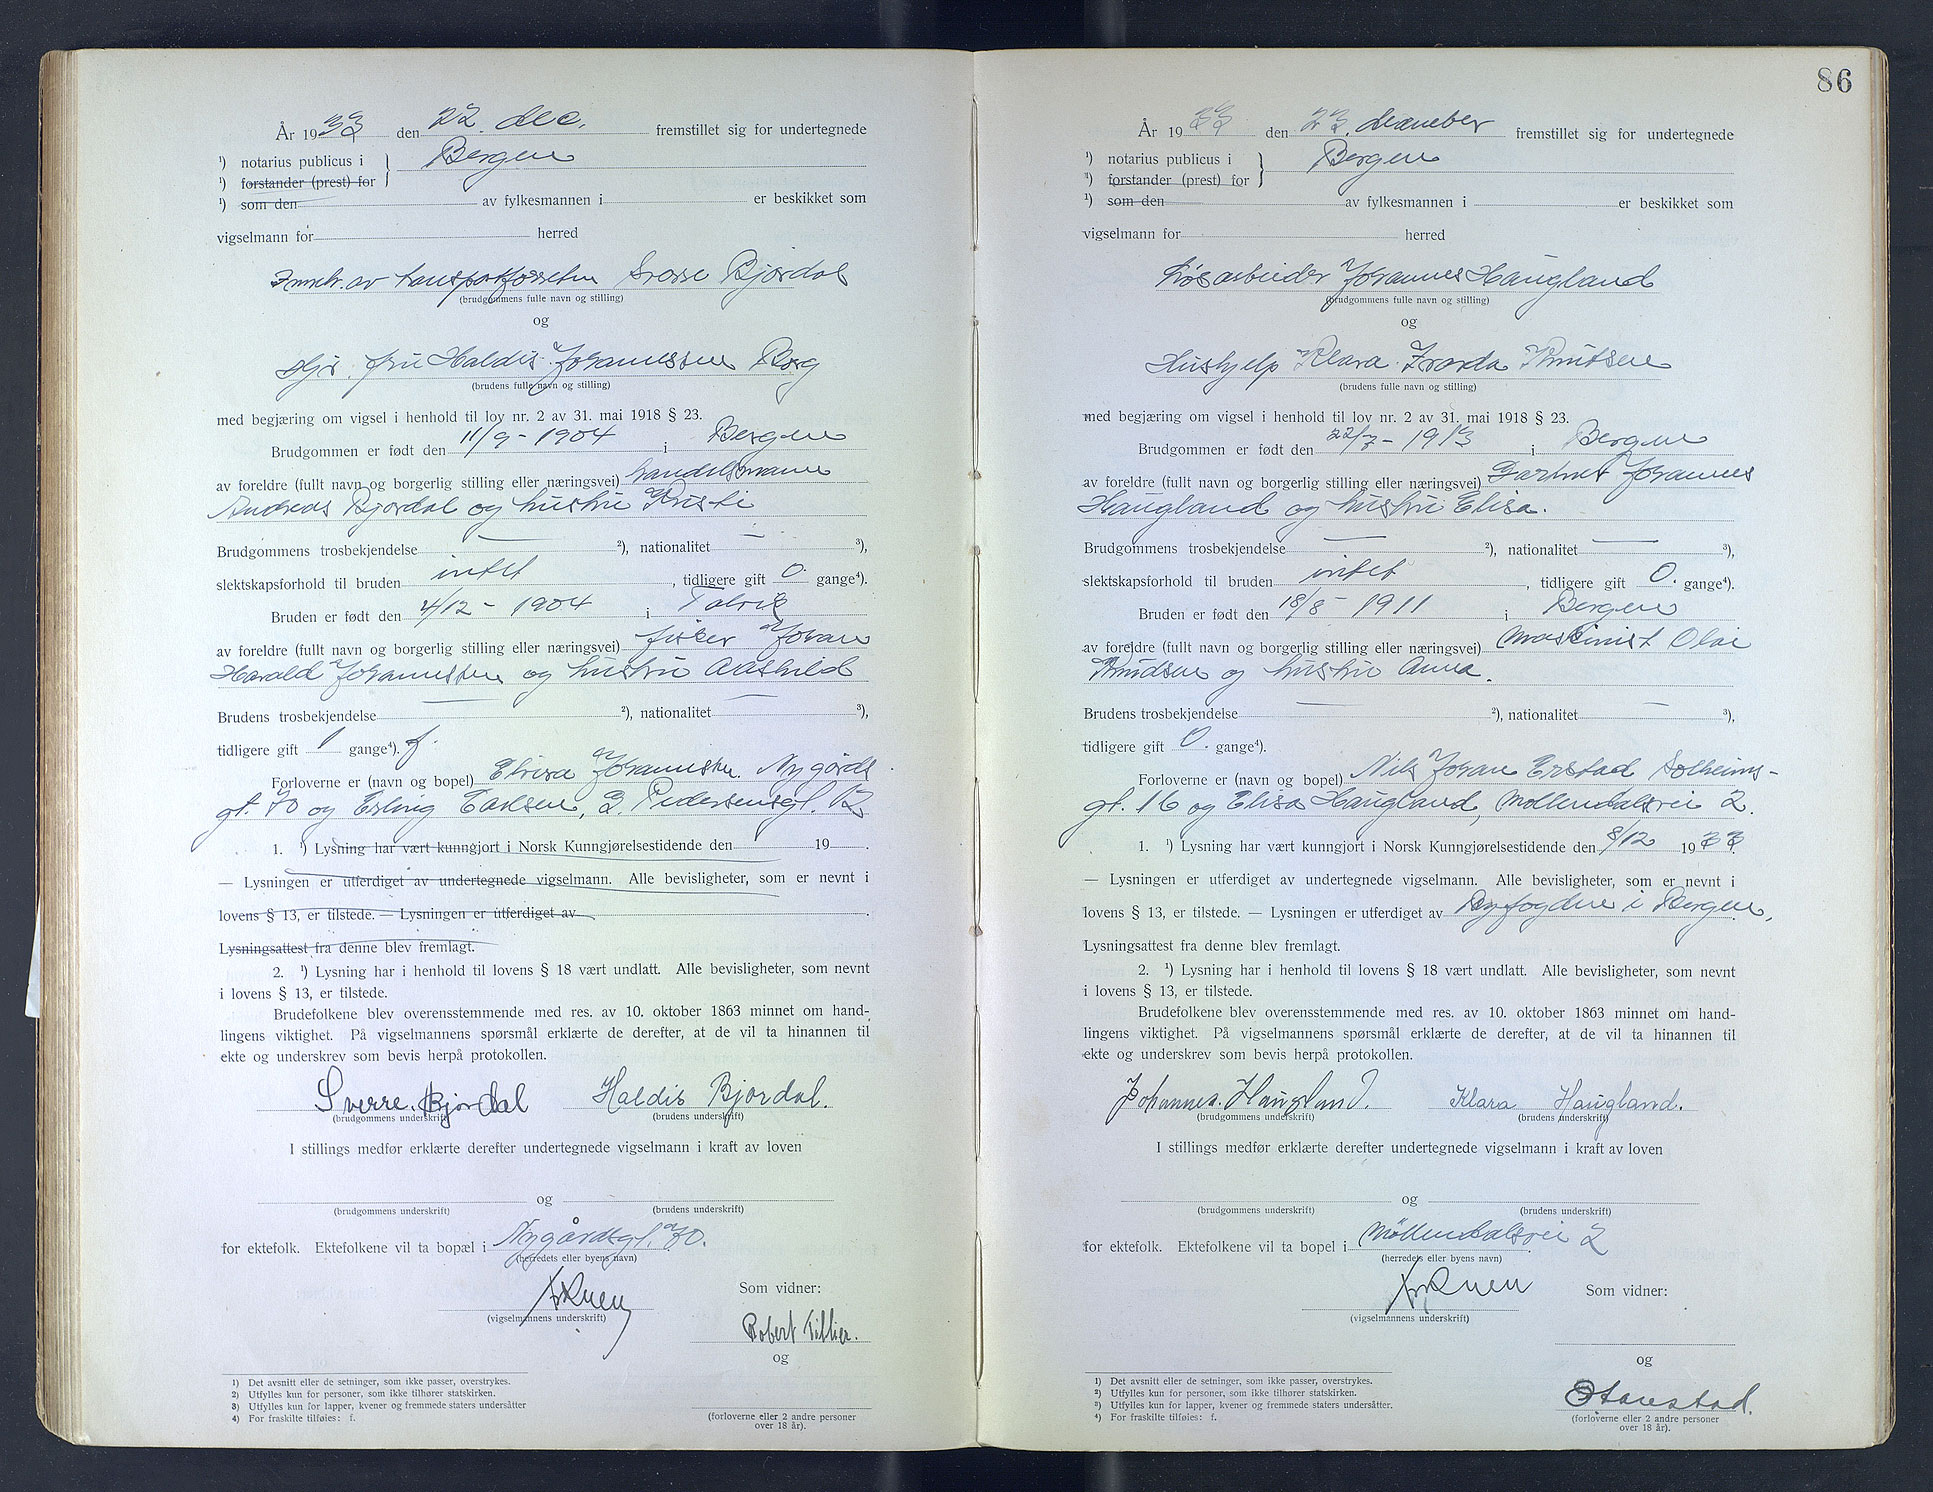 År 1933 den 22. dec. fremstillet sig for undertegnede
¹) notarius publicus i Bergen
¹) forstander (prest) for
¹) som den av fylkesmannen i er beskikket som
vigselmann for herred
av Sverre Bjordal
(brudgommens fulle navn og stilling)
og
fru Haldis Johannessen Borg
(brudens fulle navn og stilling)
med begjæring om vigsel i henhold til lov nr. 2 av 31. mai 1918 § 23.
Brudgommen er født den 11/9 - 1904 i Bergen
av foreldre (fullt navn og borgerlig stilling eller næringsvei) handelsmann
Andreas Bjordal og hustru Kristi
Brudgommens trosbekjendelse — ²), nationalitet — ³),
slektskapsforhold til bruden intet, tidligere gift 0. gange⁴).
Bruden er født den 4/12 - 1904 i Talvik
av foreldre (fullt navn og borgerlig stilling eller næringsvei) fisker Johan
Harald Johannessen og hustru Aashild
Brudens trosbekjendelse — ²), nationalitet — ³),
tidligere gift 1 gange⁴). f.
Forloverne er (navn og bopel) Johannessen. Nygårds
gt. 70 og Erling Carlsen, Pedersensgt. 12
1. ¹) Lysning har vært kunngjort i Norsk Kunngjørelsestidende den 19 .
— Lysningen er utferdiget av undertegnede vigselmann. Alle bevisligheter, som er nevnt i
lovens § 13, er tilstede. — Lysningen er utferdiget av .
Lysningsattest fra denne blev fremlagt.
2. ¹) Lysning har i henhold til lovens § 18 vært undlatt. Alle bevisligheter, som nevnt
i lovens § 13, er tilstede.
Brudefolkene blev overensstemmende med res. av 10. oktober 1863 minnet om hand-
lingens viktighet. På vigselmannens spørsmål erklærte de derefter, at de vil ta hinannen til
ekte og underskrev som bevis herpå protokollen.
Sverre. Bjordal Haldis Bjordal.
(brudgommens underskrift) (brudens underskrift)
I stillings medfør erklærte derefter undertegnede vigselmann i kraft av loven
og
(brudgommens underskrift) (brudens underskrift)
for ektefolk. Ektefolkene vil ta bopæl i Nygårdsgt. 70.
(herredets eller byens navn)
Som vidner:
(vigselmannens underskrift)
Robert Tillier.
og
1) Det avsnitt eller de setninger, som ikke passer, overstrykes.
2) Utfylles kun for personer, som ikke tilhører statskirken.
3) Utfylles kun for lapper, kvener og fremmede staters undersåtter
4) For fraskilte tilføies: f.
(forloverne eller 2 andre personer
over 18 år).
86
År 1933 den 23. december fremstillet sig for undertegnede
¹) notarius publicus i Bergen
¹) forstander (prest) for
¹) som den av fylkesmannen i er beskikket som
vigselmann for herred
Løsarbeider Johannes Haugland
(brudgommens fulle navn og stilling)
og
Hushjelp Klara Knutsen
(brudens fulle navn og stilling)
med begjæring om vigsel i henhold til lov nr. 2 av 31. mai 1918 § 23.
Brudgommen er født den 22/7 - 1913 i Bergen
av foreldre (fullt navn og borgerlig stilling eller næringsvei) Gartner Johannes
Haugland og hustru Elisa.
Brudgommens trosbekjendelse — ²), nationalitet — ³),
slektskapsforhold til bruden intet, tidligere gift 0. gange⁴).
Bruden er født den 18/8 - 1911 i Bergen
av foreldre (fullt navn og borgerlig stilling eller næringsvei) Maskinist Olai
Knudsen og hustru Anna.
Brudens trosbekjendelse — ²), nationalitet — ³),
tidligere gift 0. gange⁴).
Forloverne er (navn og bopel) Nils Johan Erstad Solheims-
gt. 16 og Elisa Haugland, Møllendalsvei 2.
1. ¹) Lysning har vært kunngjort i Norsk Kunngjørelsestidende den 8/12 1933.
— Lysningen er utferdiget av undertegnede vigselmann. Alle bevisligheter, som er nevnt i
lovens § 13, er tilstede. — Lysningen er utferdiget av Byfogden i Bergen,
Lysningsattest fra denne blev fremlagt.
2. ¹) Lysning har i henhold til lovens § 18 vært undlatt. Alle bevisligheter, som nevnt
i lovens § 13, er tilstede.
Brudefolkene blev overensstemmende med res. av 10. oktober 1863 minnet om hand-
lingens viktighet. På vigselmannens spørsmål erklærte de derefter, at de vil ta hinannen til
ekte og underskrev som bevis herpå protokollen.
Johannes. Haugland. Klara Haugland.
(brudgommens underskrift) (brudens underskrift)
I stillings medfør erklærte derefter undertegnede vigselmann i kraft av loven
og
(brudgommens underskrift) (brudens underskrift)
for ektefolk. Ektefolkene vil ta bopel i Møllendalsvei 2
(herredets eller byens navn)
Som vidner:
(vigselmannens underskrift)
og
1) Det avsnitt eller de setninger, som ikke passer, overstrykes.
²) Utfylles kun for personer, som ikke tilhører statskirken.
³) Utfylles kun for lapper, kvener og fremmede staters undersåtter.
⁴) For fraskilte tilføies: f.
(forloverne eller 2 andre personer
over 18 år).